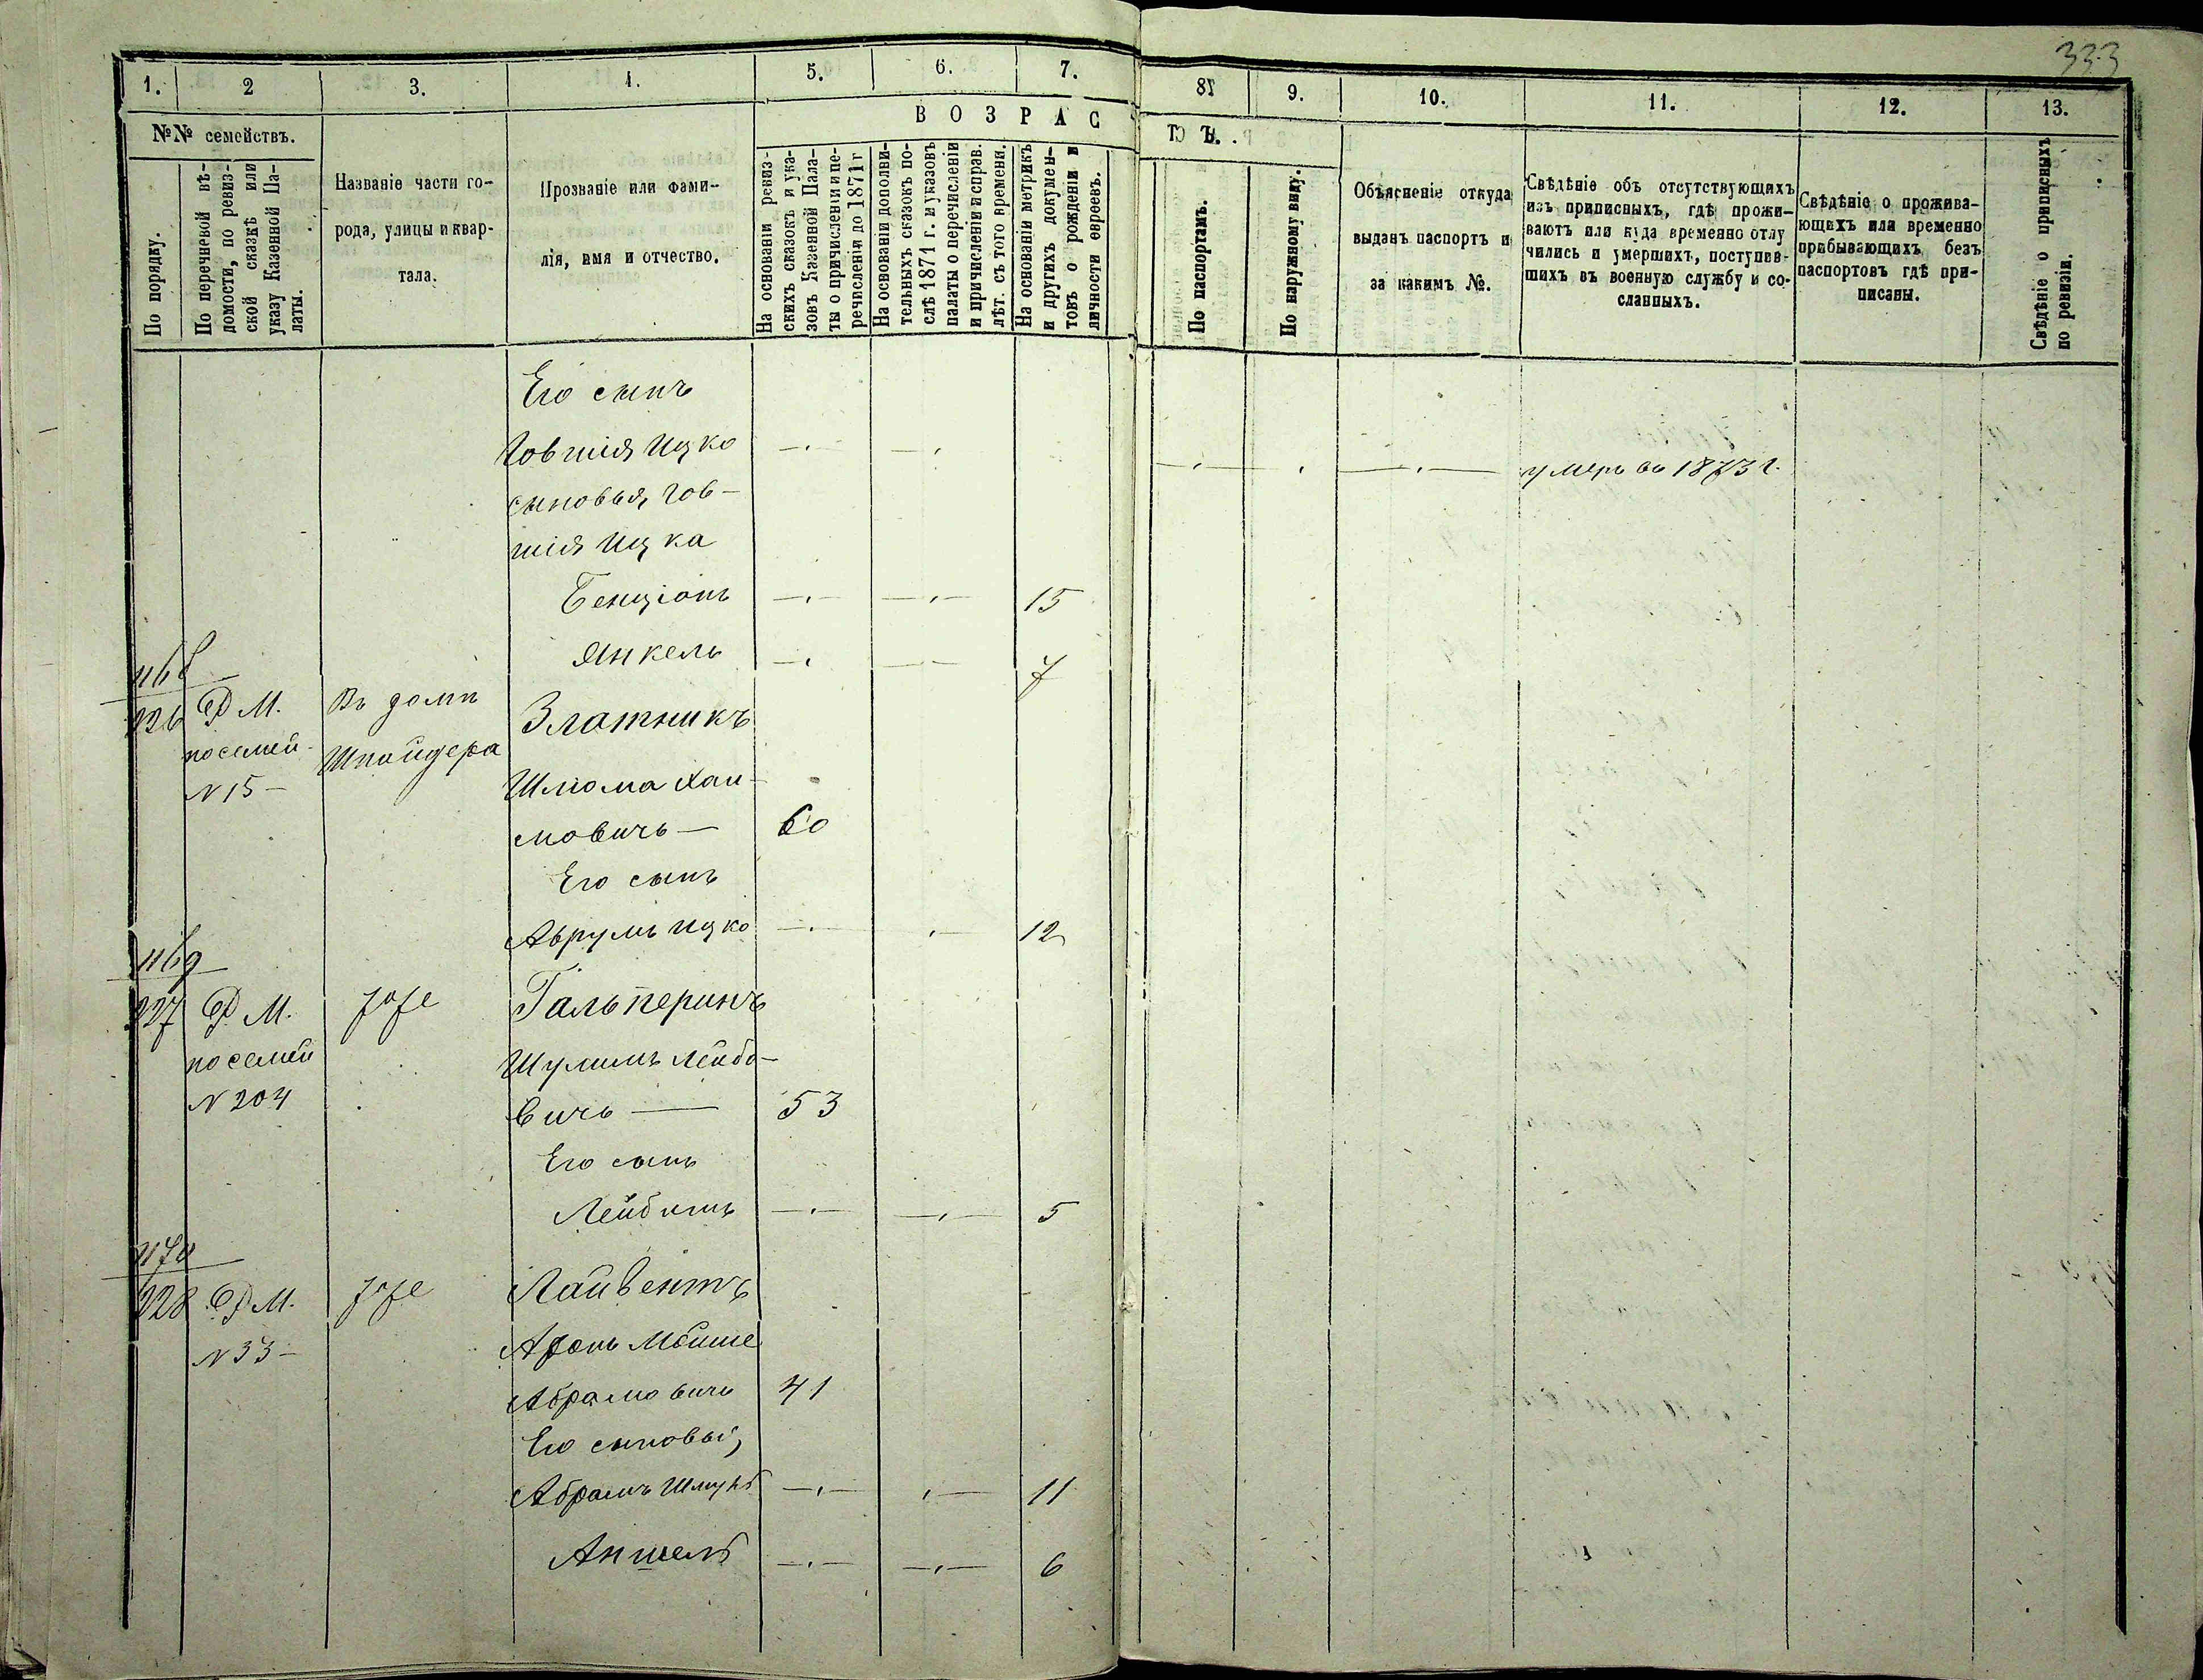 333
1. 2 3. 4. 5. 6. 7. 8 9. 10. 11. 12. 13.
№№ семействъ.
ВОЗРАС
ТЪ.
По порядку.
По перечневой вѣ-
домости, по ревиз-
ской сказкѣ или
указу Казенной Па-
латы.
Названіе части го-
рода, улицы и квар-
тала.
Прозваніе или фами-
лія, имя и отчество.
На основаніи ревиз-
скихъ сказокъ и ука-
зовъ Казенной Пала-
ты о причисленіи и пе-
речисленіи до 1871 г
На основаніи дополни-
тельныхъ сказокъ по-
слѣ 1871 г. и указовъ
палаты о перечисленіи
и причисленіи и справ.
лѣт. съ того времени.
На основаніи метрикъ
и другихъ докумен-
товъ о рожденіи и
личности евреевъ.
По паспортамъ.
По наружному виду.
Объясненіе откуда
выданъ паспортъ и
за какимъ №.
Свѣдѣніе объ отсутствующихъ
изъ приписныхъ, гдѣ прожи-
ваютъ или куда временно отлу
чились и умершихъ, поступив-
шихъ въ военную службу и со-
сланныхъ.
Свѣдѣніе о прожива-
ющихъ или временно
прибывающихъ безъ
паспортовъ гдѣ при-
писаны.
Свѣдѣніе о приписныхъ
по ревизіи.
Его сынъ
Говшія Ицко умеръ въ 1873 г.
сыновья Гов-
шія Ицка
Бенціонъ 15
Янкель 7
1168
226 Р. М. Въ домѣ Златникъ
посемей- Шнайдера
N 15 - Шлома Хаи-
мовичъ — 60
Его сынъ
Аврумъ Ицко 12
1169
227 Р. М. Гальперинъ
посемей Шулимъ Лейбо-
N 204 вичъ — 53
Его сынъ
Лейбишъ 5
1170
228 Р. М. Лайвентъ
N 33 - Аронъ Мойше
Абрамовичъ 41
Его сыновья,
Абрамъ 11
Аншель 6